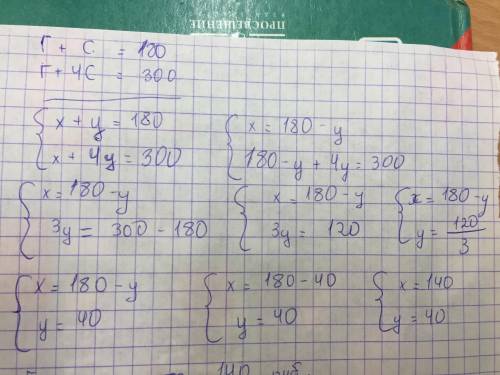 ПРОСВЕЩЕНИЕ
Г + С = 180
Г + 4С = 300
x + y = 180
x + 4y = 300
x = 180 - y
180 - y + 4y = 300
x = 180 - y
3y = 300 - 180
x = 180 - y
3y = 120
x = 180 - y
y = 120/3
x = 180 - y
y = 40
x = 180 - 40
y = 40
x = 140
y = 40
140 руб